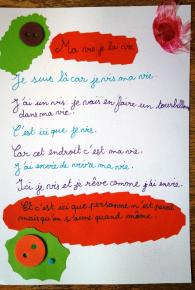 Ma vie je la vie
Je suis là car je vis ma vie.
J'ai un vis je vais en faire un tourbillon
dans ma vie.
C'est ici que je vis.
Car cet endroit c'est ma vie.
J'ai envie de vivre ma vie.
Ici je vis et je rêve comme j'ai envie.
Et c'est ici que personne n'est pareil
mais qu'on s'aime quand même.